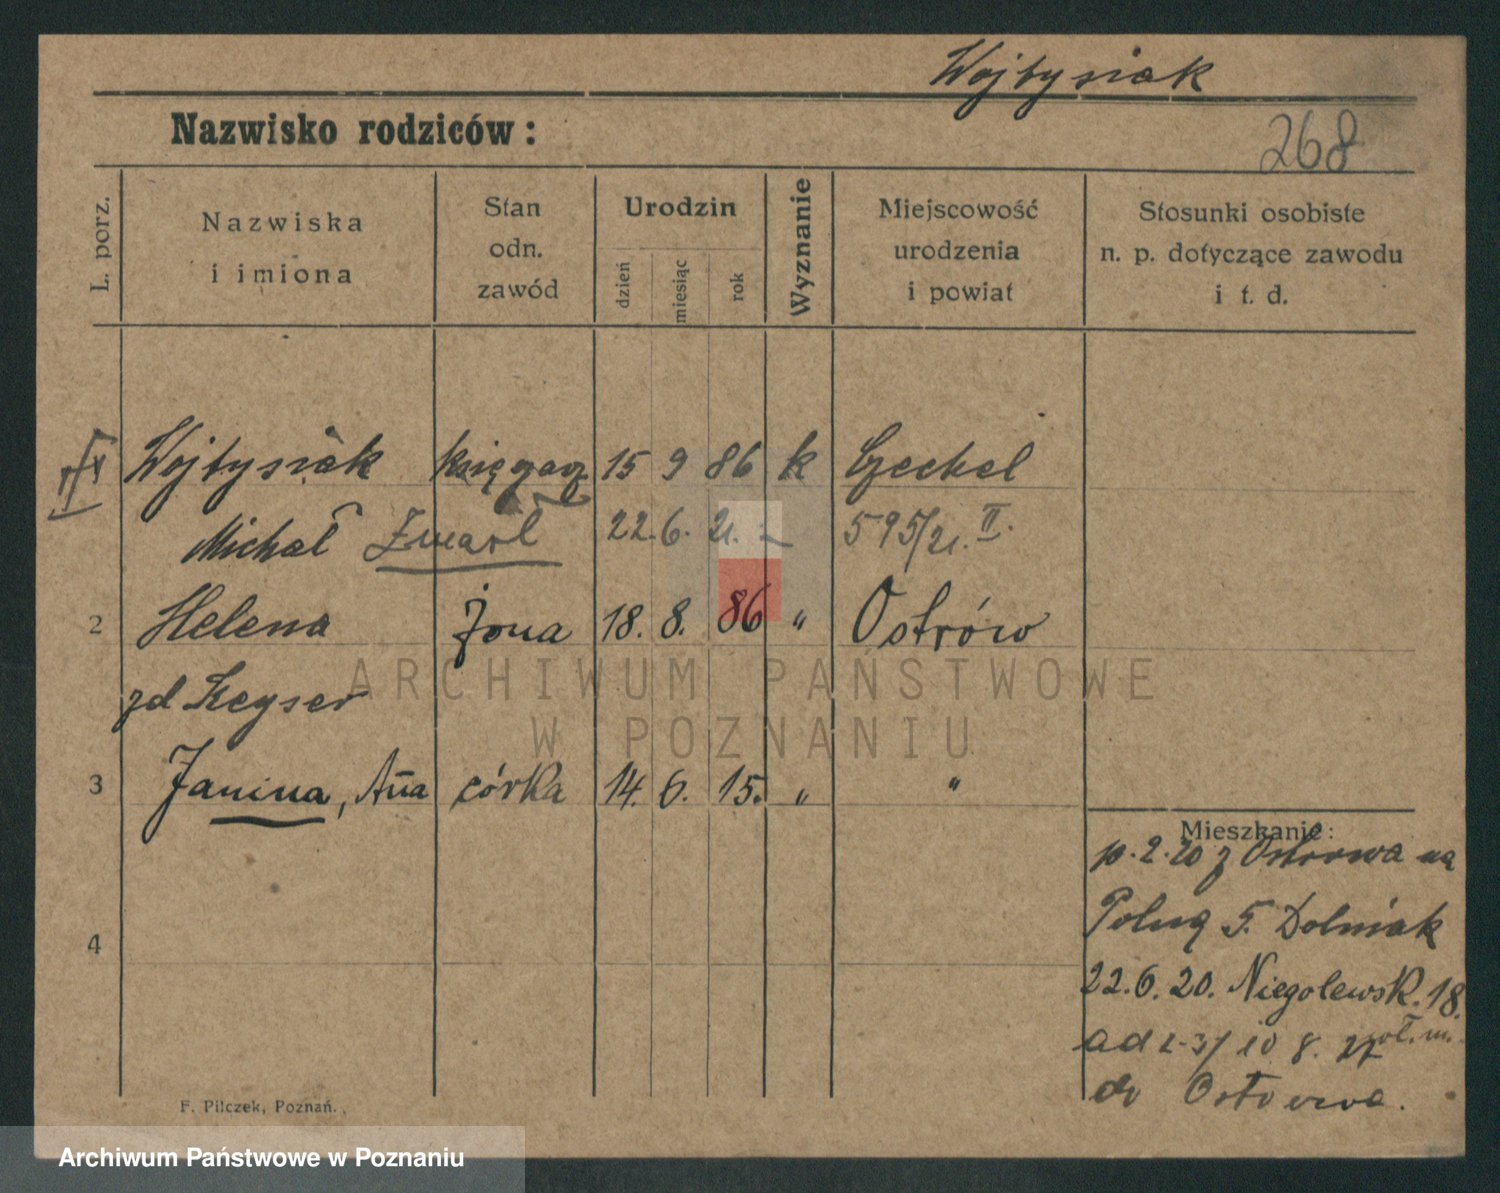 Wojtysiak
Nazwisko rodziców:
268
L. porz.
Nazwiska
i imiona
Stan
odn.
zawód
Urodzin
dzień
miesiąc
rok
Wyznanie
Miejscowość
urodzenia
i powiat
Stosunki osobiste
n. p. dotyczące zawodu
i t. d.
Wojtysiak księgarz 15 9 86 k Czekel
Michał Zmarł 22. 6. 21. 595/21. II.
2 Helena żona 18. 8. 86 " Ostrów
zd Keyser
3 Janina, Anna córka 14. 6. 15. " "
Mieszkanie:
10.2.20 z Ostrowa na
Polną 5. Dolniak
4
22.6.20. Niegolewsk. 18.
ad 2-3/ 10 8. 27
do Ostrowa.
F. Pilczek, Poznań.
ARCHIWUM PAŃSTWOWE
W POZNANIU
Archiwum Państwowe w Poznaniu